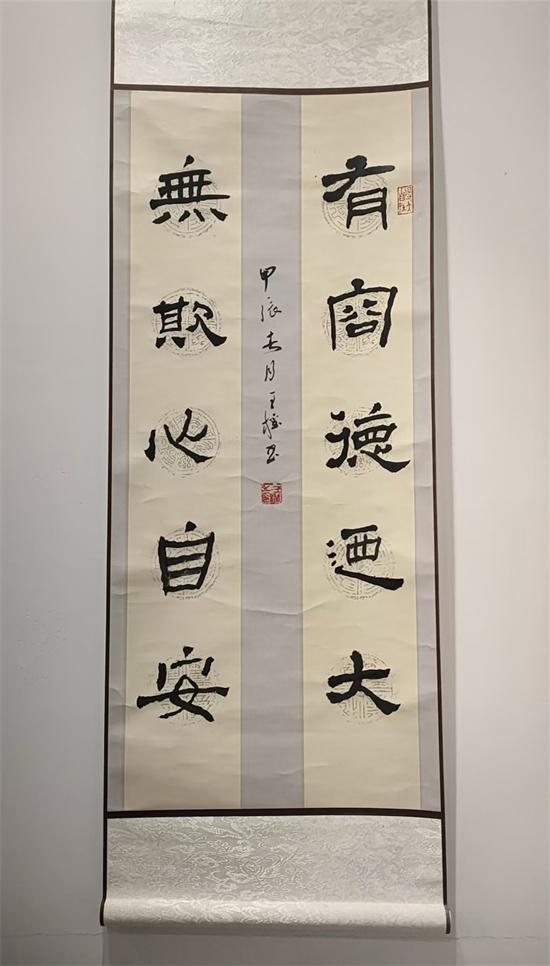 有容德迺大
無欺心自安
甲辰春月王